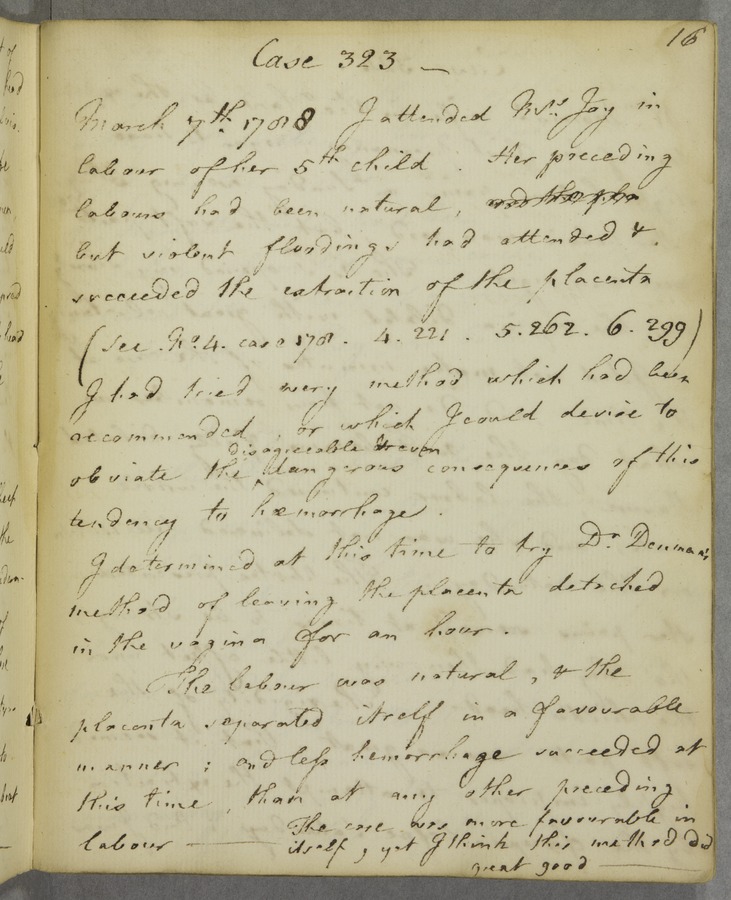 16
Case 323 —
March 7th. 1788 I attended Mrs. Joy in
labour of her 5th child . Her preceding
labours had been natural, and the pla
but violent floodings had attended &
succeeded the extraction of the placenta
(see No. 4. case 178. 4. 221. 5. 262. 6. 299)
I had tried every method which had been
recommended, or which I could devise to
disagreeable & even
obviate the ^ dangerous consequences of this
tendency to hæmorrhage.
I determined at this time to try Dr. Denman's
method of leaving the placenta detached
in the vagina for an hour.
The labour was natural, & the
placenta separated itself in a favourable
manner; and less hemorrhage succeeded at
this time, than at any other preceding
labour —— The case was more favourable in
itself, yet I think this method did
great good ——